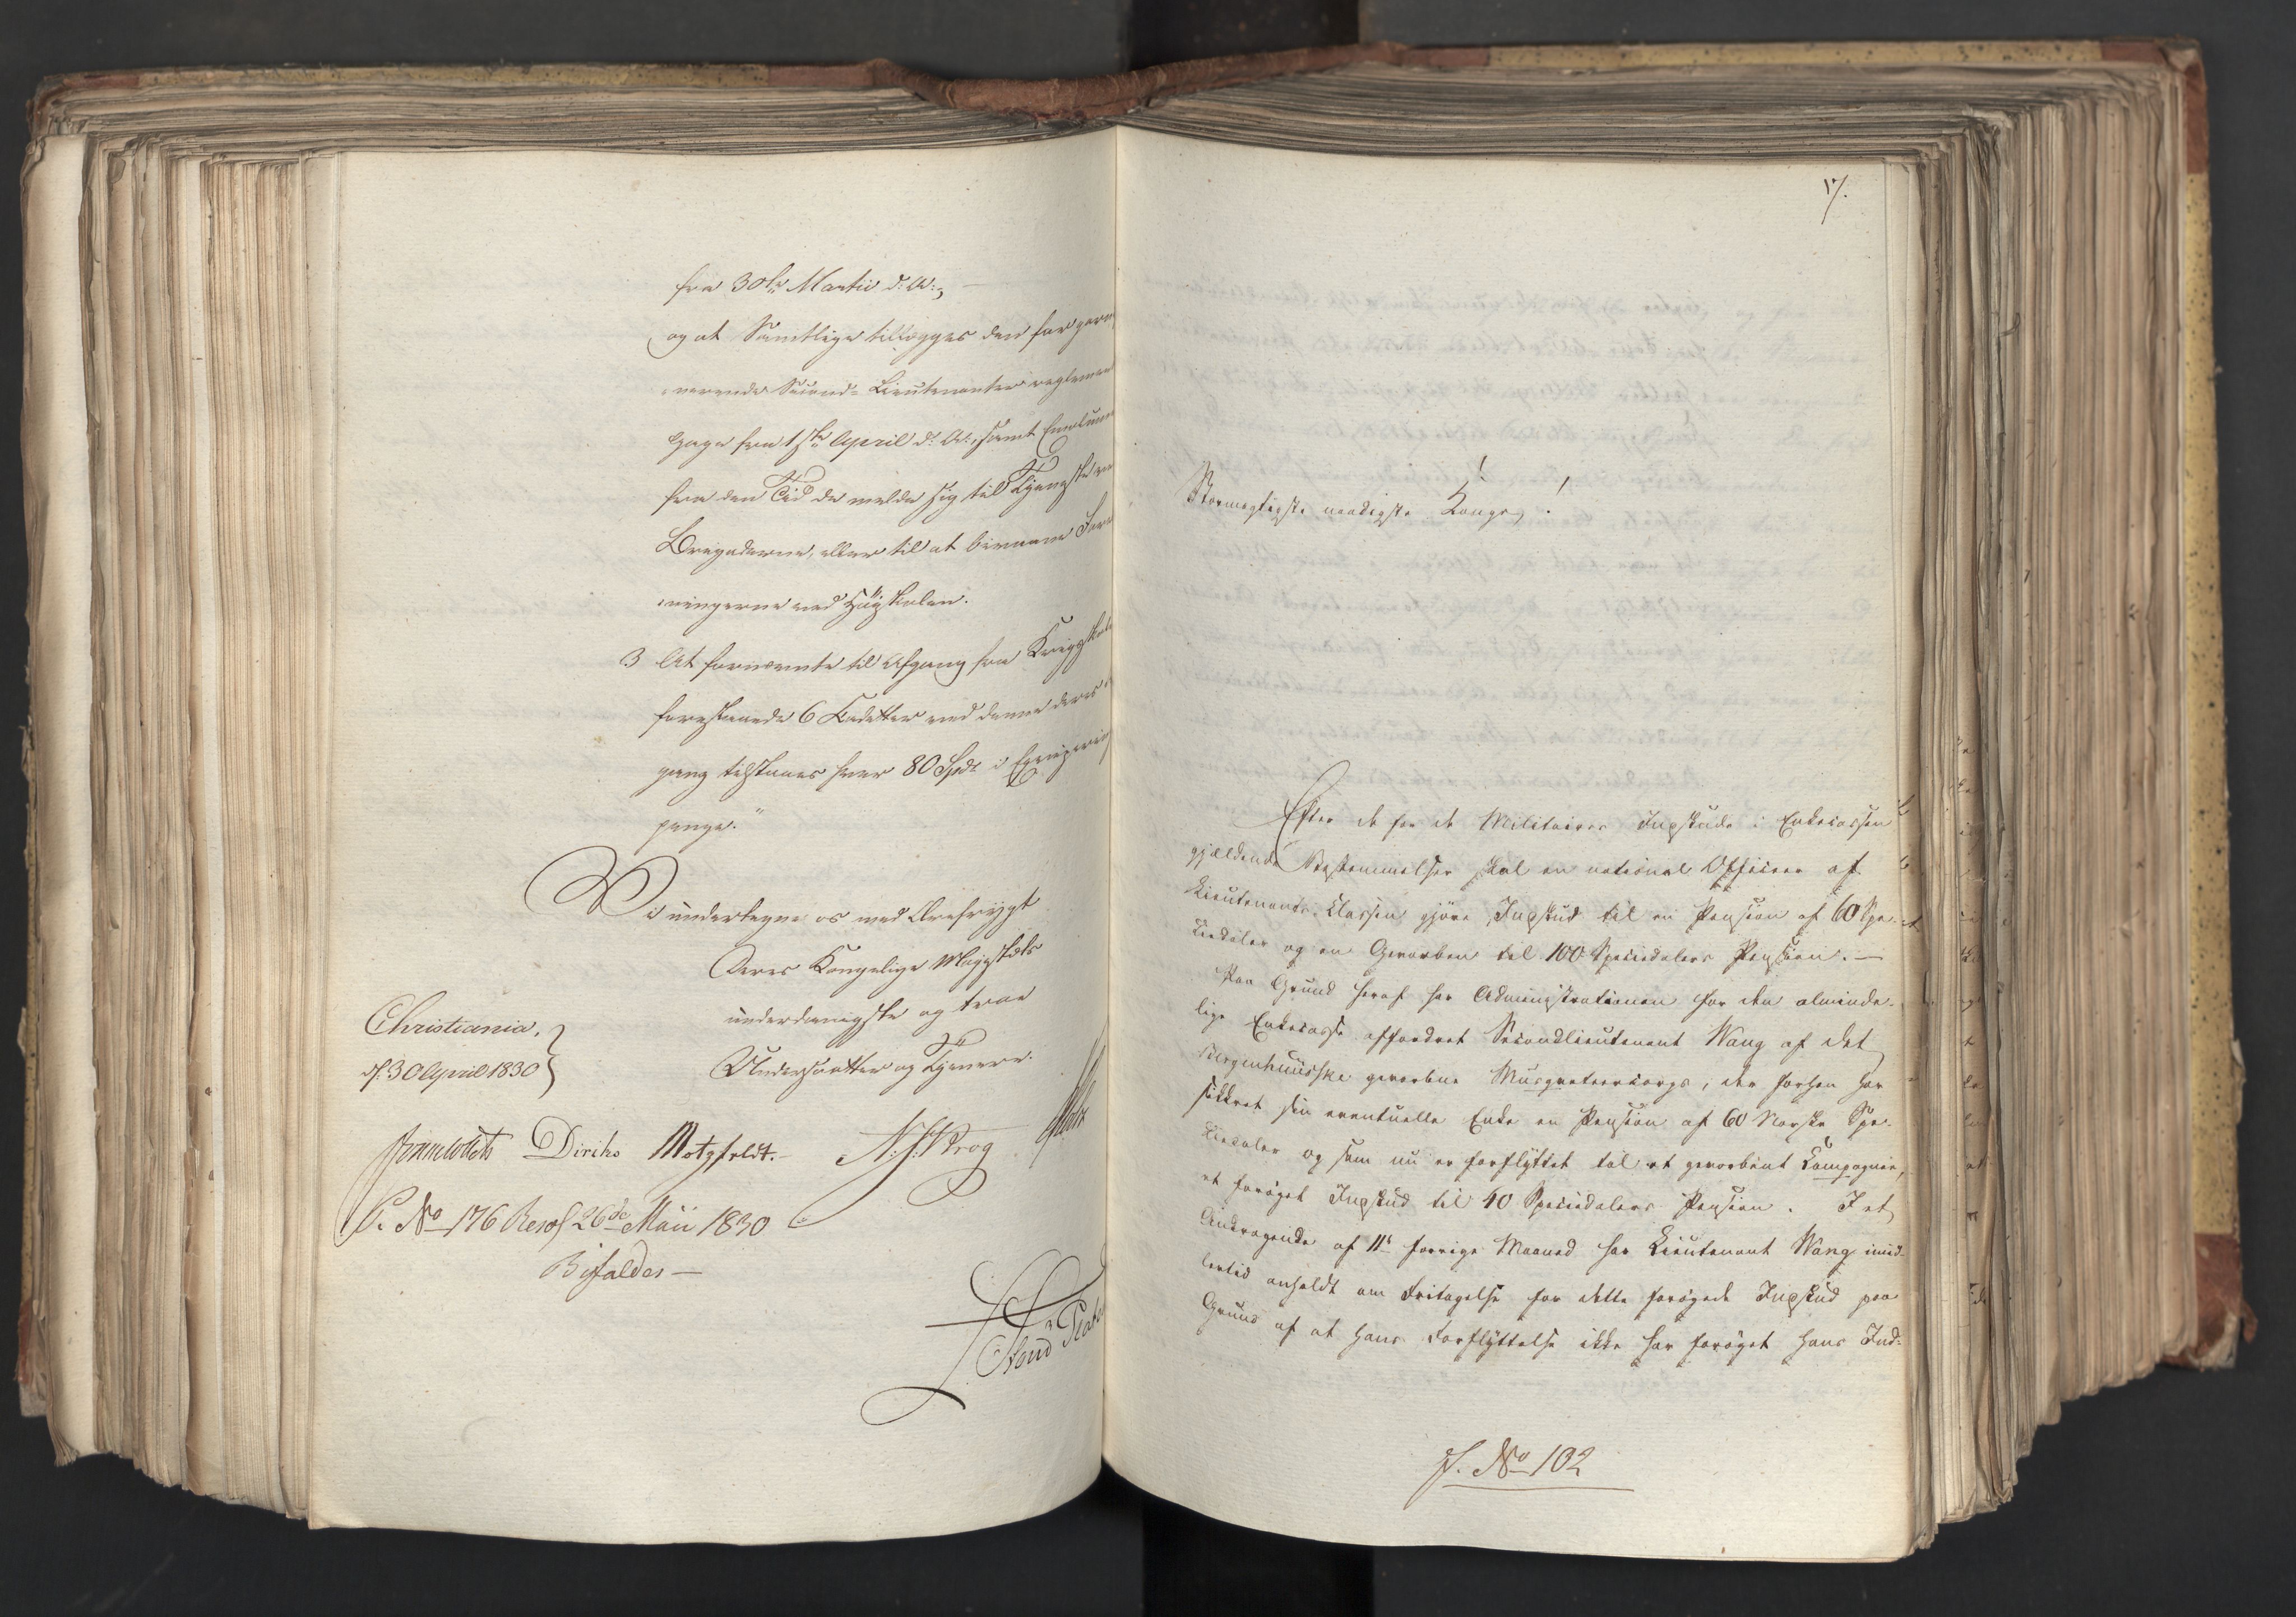 fra 30te Martii d: A:,
og at Samtlige tillægges den for gevor-
nerende Second-Lieutenanter reglemen
Gage fra 1ste April d: A:, samt Emolum
fra den Tid de melde sig til Tjeneste ved
Brigaderne, eller til at bivaane Fore
ningerne ved Høiskolen.
3 At fornævnte til Afgang fra Krigsskole
forestaaede 6 Cadetter ved denne deres
gang tilstaaes hver 80 Spdr i Equiperings
penge."
Vi undertegne os med Ærefrygt
Deres Kongelige Majestæts
underdanigste og troe
Undersaatter og Tjenere.
Christiania,
d: 30 April 1830
Diriks Motzfeldt. N. J. Krog Holst
P. No 176 Resol 26de Maii 1830
Bifaldes —
17.
Stormægtigste naadigste Konge!
Efter de for de Militaires Indskude i Enkecassen
gjældende Bestemmelser skal en national Officeer af
Lieutenants-Classen gjøre Indskud til en Pension af 60 Spe-
ciedaler og en Gevorben til 100 Speciedalers Pension. —
Paa Grund heraf har Administrationen for den alminde-
lige Enkecasse affordret Secondlieutenant Wang af det
Bergenhuusske gevorbne Musqueteercorps, der forhen har
sikkret sin eventuelle Enke en Pension af 60 Norske Spe-
ciedaler og som nu er forflyttet til et gevorbent Compagnie,
et forøget Indskud til 40 Speciedalers Pension. I et
Andragende af 11te forrige Maaned har Lieutenant Wang imid-
lertid anholdt om Fritagelse for dette forøgede Indskud paa
Grund af at hans Forflyttelse ikke har forøget hans Ind-
J. No 102